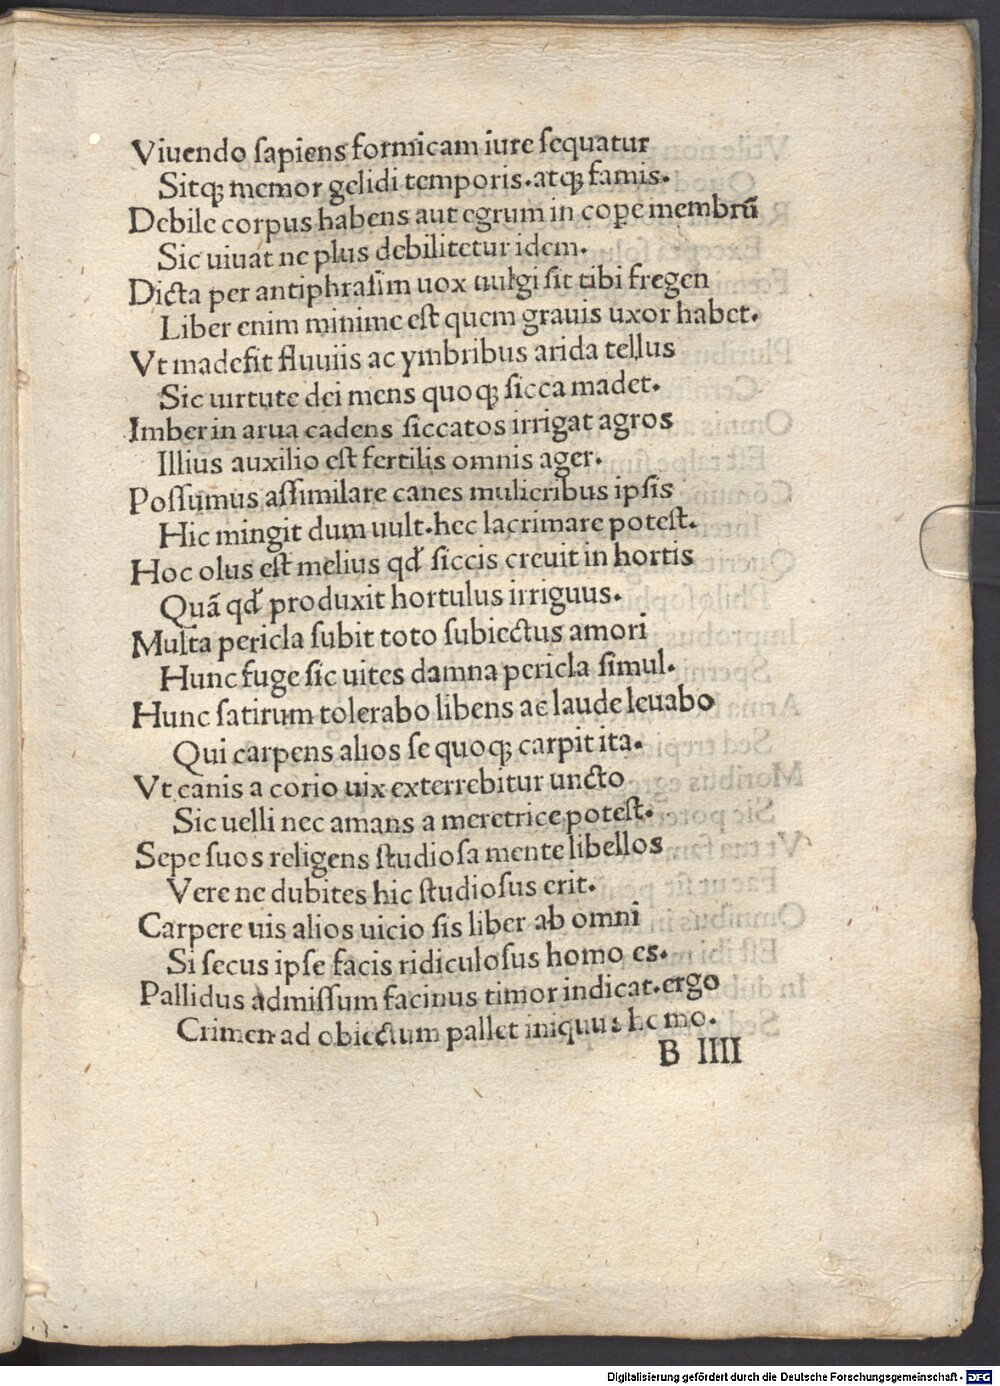 Viuendo ſapiens formicam iure ſequatur
Sitqꝫ memor gelidi temporis.atqꝫ famis.
Debile corpus habens aut egrum in cope membrū
Sic uiuat ne plus debilitetur idem.
Dicta per antiphraſim uox uulgi ſit tibi fregen
Liber enim minime eſt quem grauis uxor habet.
Vt madefit fluuiis ac ymbribus arida tellus
Sic uirtute dei mens quoqꝫ ſicca madet.
Imber in arua cadens ſiccatos irrigat agros
Illius auxilio eſt fertilis omnis ager.
Poſſumus aſſimilare canes mulieribus ipſis
Hic mingit dum uult.hec lacrimare poteſt.
Hoc olus eſt melius qđ ſiccis creuit in hortis
Quā qđ produxit hortulus irriguus.
Multa pericla ſubit toto ſubiectus amori
Hunc fuge ſic uites damna pericla ſimul.
Hunc ſatirum tolerabo libens ac laude leuabo
Qui carpens alios ſe quoqꝫ carpit ita.
Vt canis a corio uix exterrebitur uncto
Sic uelli nec amans a meretrice poteſt.
Sepe ſuos religens ſtudioſa mente libellos
Vere ne dubites hic ſtudioſus erit.
Carpere uis alios uicio ſis liber ab omni
Si ſecus ipſe facis ridiculoſus homo es.
Pallidus admiſſum facinus timor indicat.ergo
Crimen ad obiectum pallet iniquus homo.
B IIII
Digitalisierung gefördert durch die Deutsche Forschungsgemeinschaft - DFG